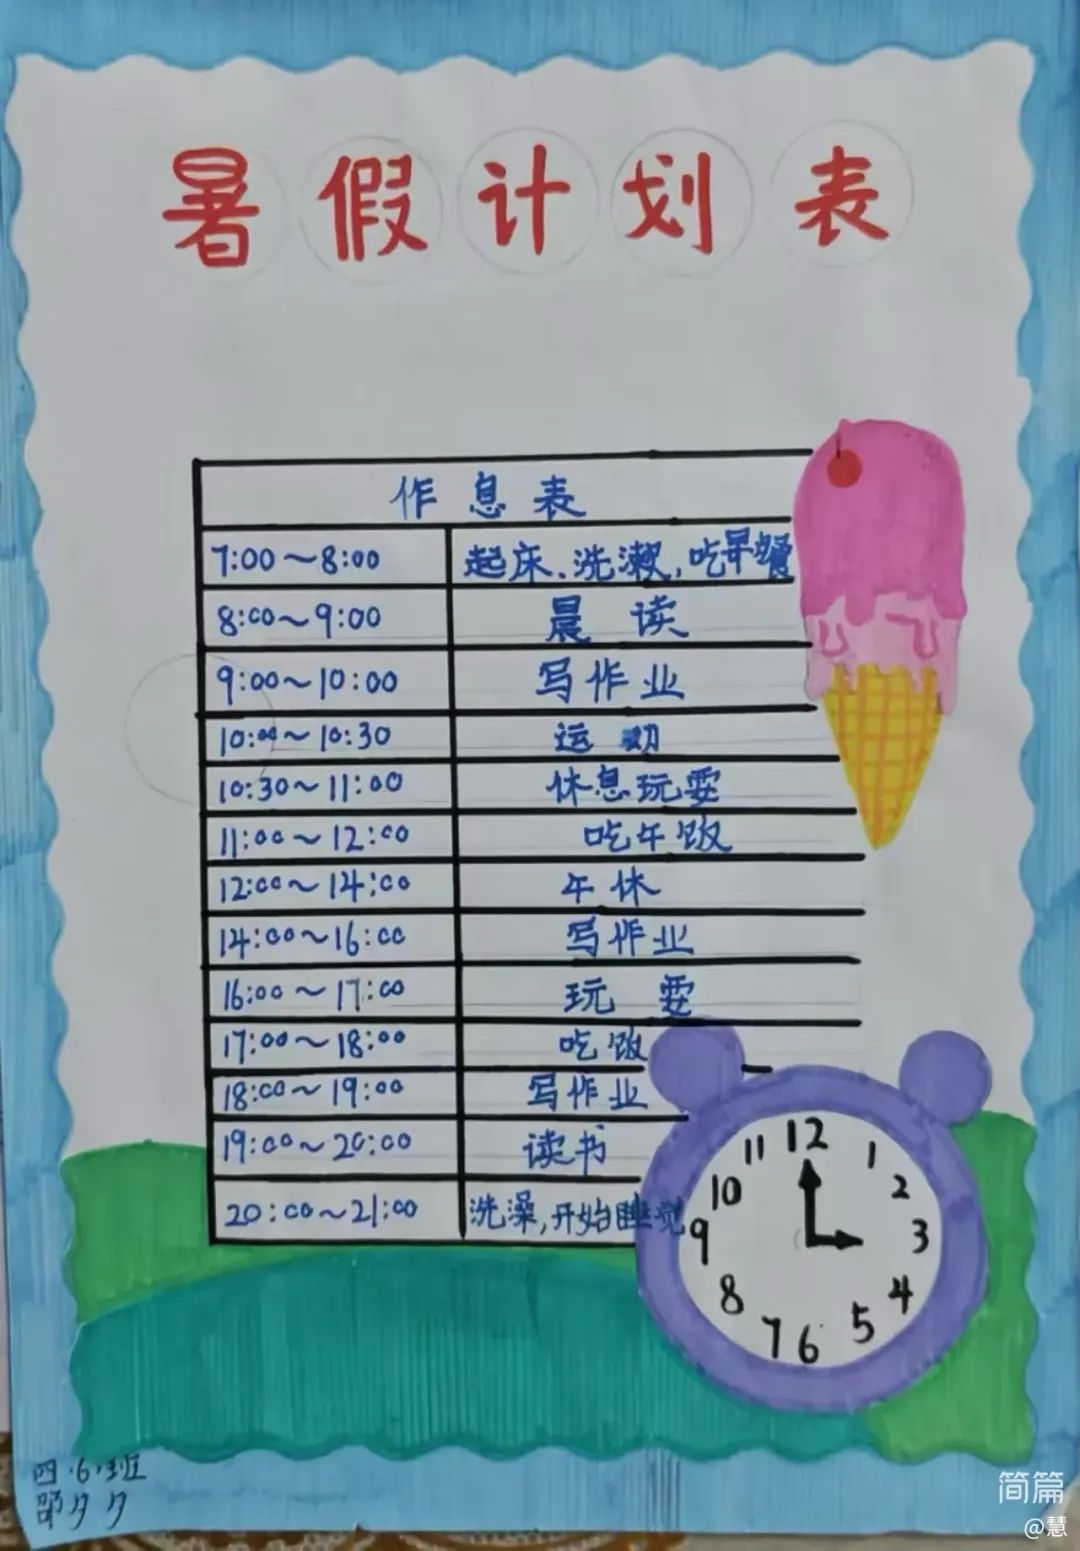 暑假计划表
作息表
7:00～8:00 起床、洗漱,吃早餐
8:00～9:00 晨读
9:00～10:00 写作业
10:00～10:30 运动
10:30～11:00 休息玩耍
11:00～12:00 吃午饭
12:00～14:00 午休
14:00～16:00 写作业
16:00～17:00 玩耍
17:00～18:00 吃饭
18:00～19:00 写作业
19:00～20:00 读书
20:00～21:00 洗澡,开始睡觉
12
11 1
10 2
9 3
8 4
7 5
6
四.6.班
邵夕夕
简篇
@慧